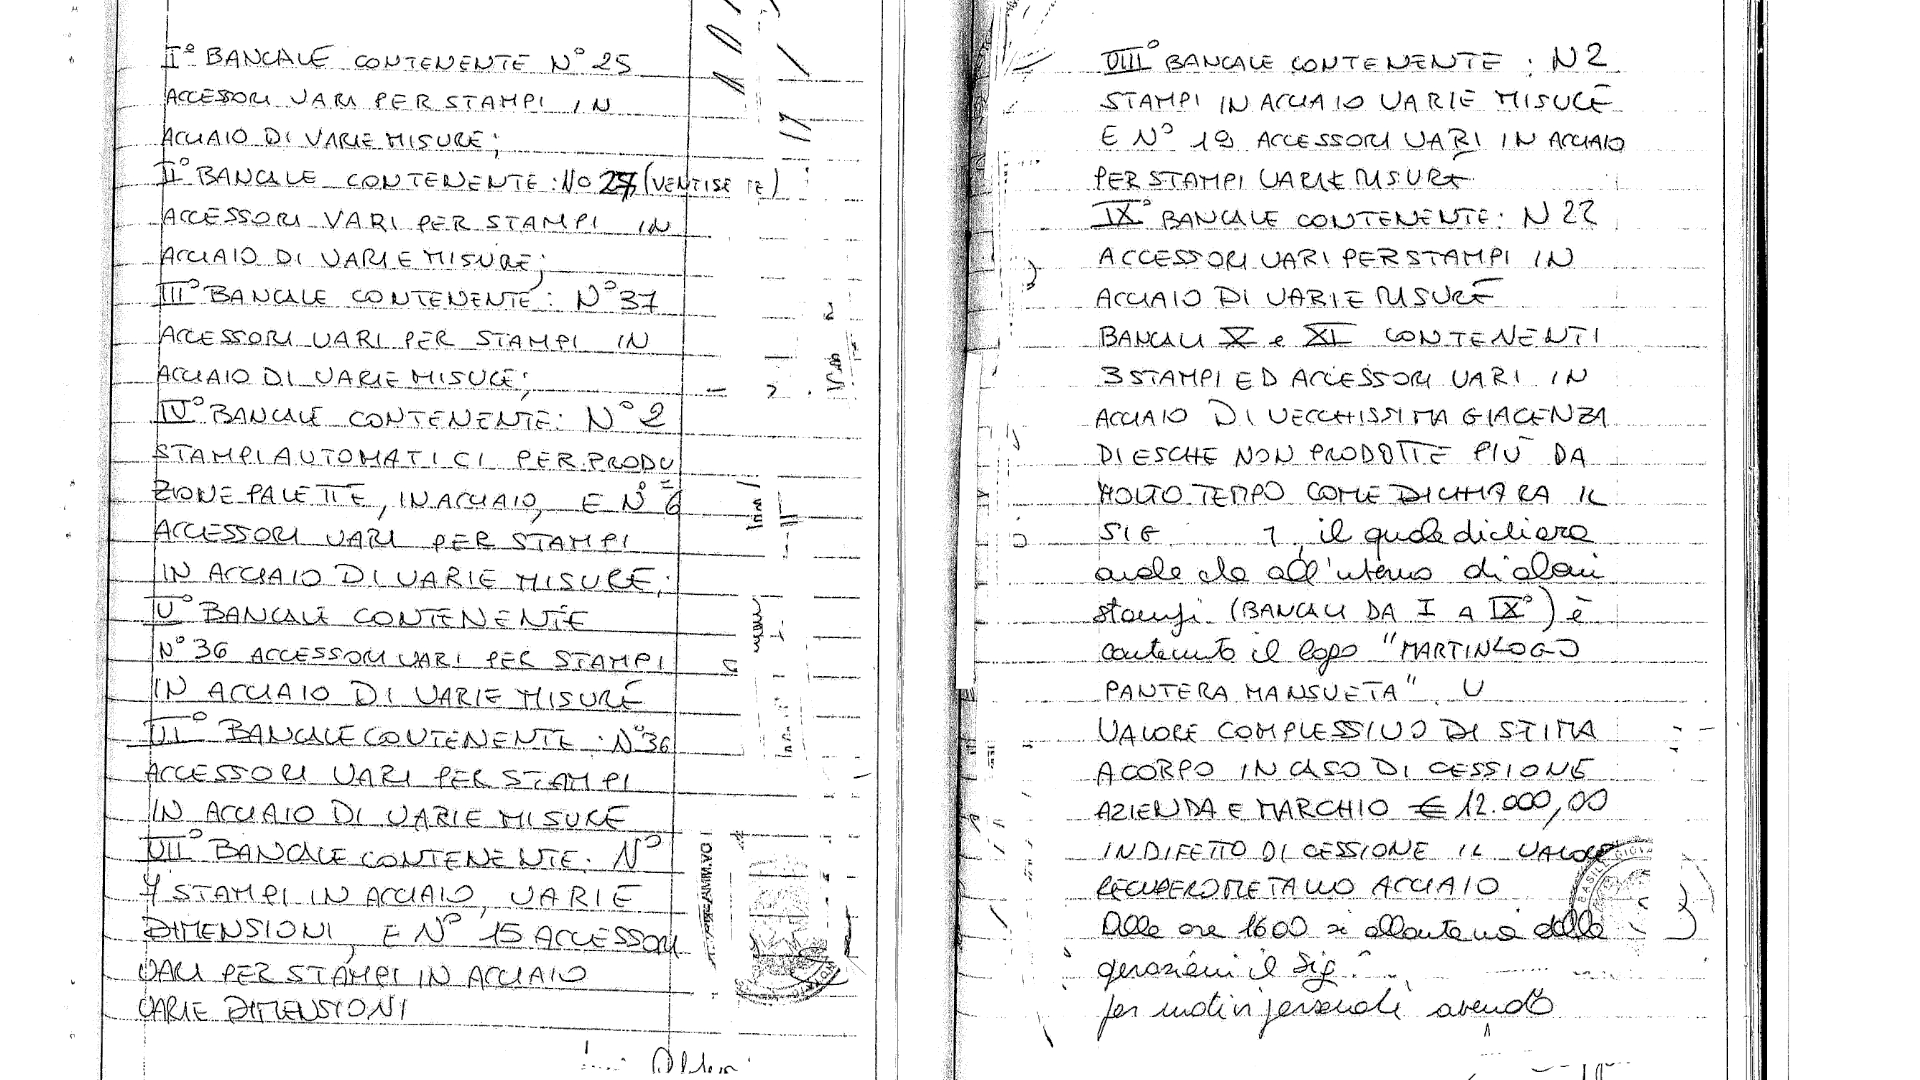 I° BANCALE CONTENENTE N° 25
ACCESSORI VARI PER STAMPI IN
ACCIAIO DI VARIE MISURE;
II° BANCALE CONTENENTE: No 27 (VENTISE TE)
ACCESSORI VARI PER STAMPI IN
ACCIAIO DI VARIE MISURE;
III° BANCALE CONTENENTE: N° 37
ACCESSORI VARI PER STAMPI IN
ACCIAIO DI VARIE MISURE;
IV° BANCALE CONTENENTE: N° 2
STAMPI AUTOMATICI PER PRODU
ZIONE PALETTE, IN ACCIAIO, E N° 6
ACCESSORI VARI PER STAMPI
IN ACCIAIO DI VARIE MISURE;
V° BANCALE CONTENENTE
N° 36 ACCESSORI VARI PER STAMPI
IN ACCIAIO DI VARIE MISURE
VI° BANCALE CONTENENTE: N° 36
ACCESSORI VARI PER STAMPI
IN ACCIAIO DI VARIE MISURE
VII° BANCALE CONTENENTE: N°
7 STAMPI IN ACCIAIO, VARIE
DIMENSIONI, E N° 15 ACCESSORI
VARI PER STAMPI IN ACCIAIO
VARIE DIMENSIONI
VIII° BANCALE CONTENENTE: N 2
STAMPI IN ACCIAIO VARIE MISURE
E N° 19 ACCESSORI VARI IN ACCIAIO
PER STAMPI VARIE MISURE
IX° BANCALE CONTENENTE: N 22
ACCESSORI VARI PER STAMPI IN
ACCIAIO DI VARIE MISURE
BANCALI X e XI CONTENENTI
3 STAMPI ED ACCESSORI VARI IN
ACCIAIO DI VECCHISSIMA GIACENZA
DI ESCHE NON PRODOTTE PIÙ DA
MOLTO TEMPO COME DICHIARA IL
SIG , il quale dichiara
anche che all'interno di alcuni
stampi (BANCALI DA I A IX°) è
contenuto il logo "MARTINLOGO
PANTERA MANSUETA" U
VALORE COMPLESSIVO DI STIMA
A CORPO IN CASO DI CESSIONE
AZIENDA E MARCHIO € 12.000,00
IN DIFETTO DI CESSIONE IL VALORE
RECUPERO METALLO ACCIAIO
Alle ore 1600 si allontana dalle
operazioni il Sig.
per motivi personali avendo